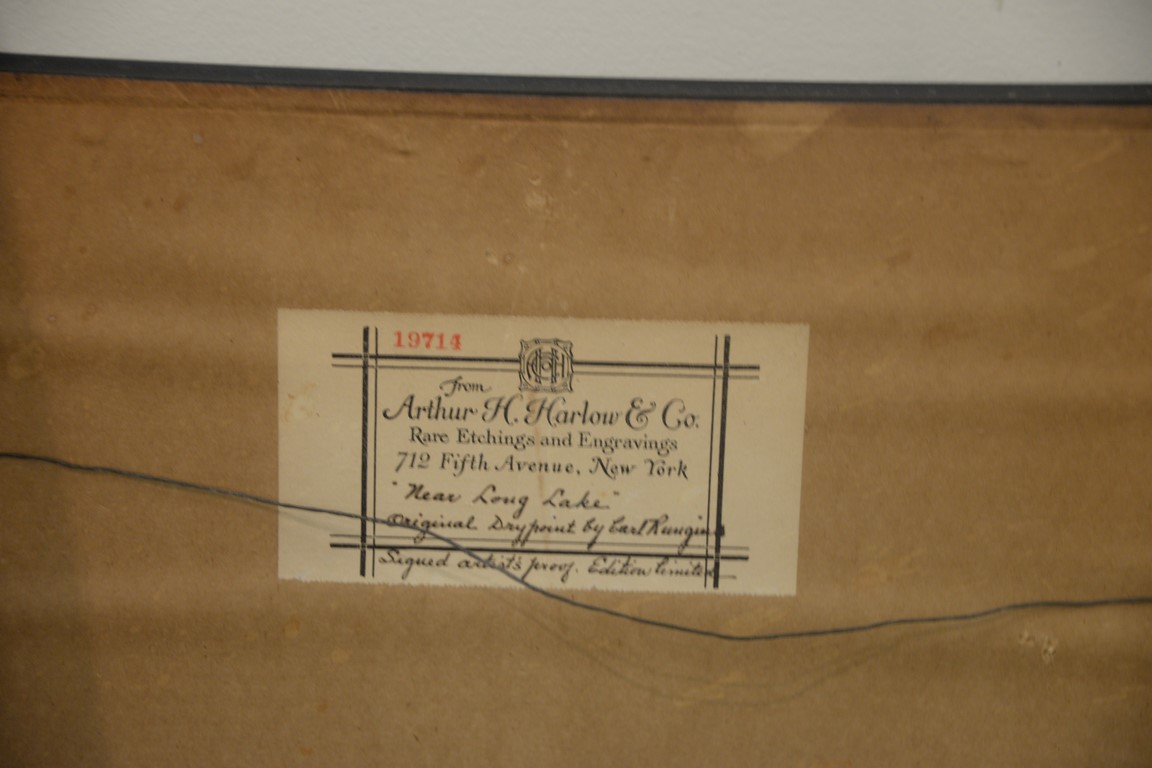 19714
from
Arthur H. Harlow & Co.
Rare Etchings and Engravings
712 Fifth Avenue, New York
"Near Long Lake"
Original Drypoint by Carl Rungius
Signed artist's proof. Edition limited